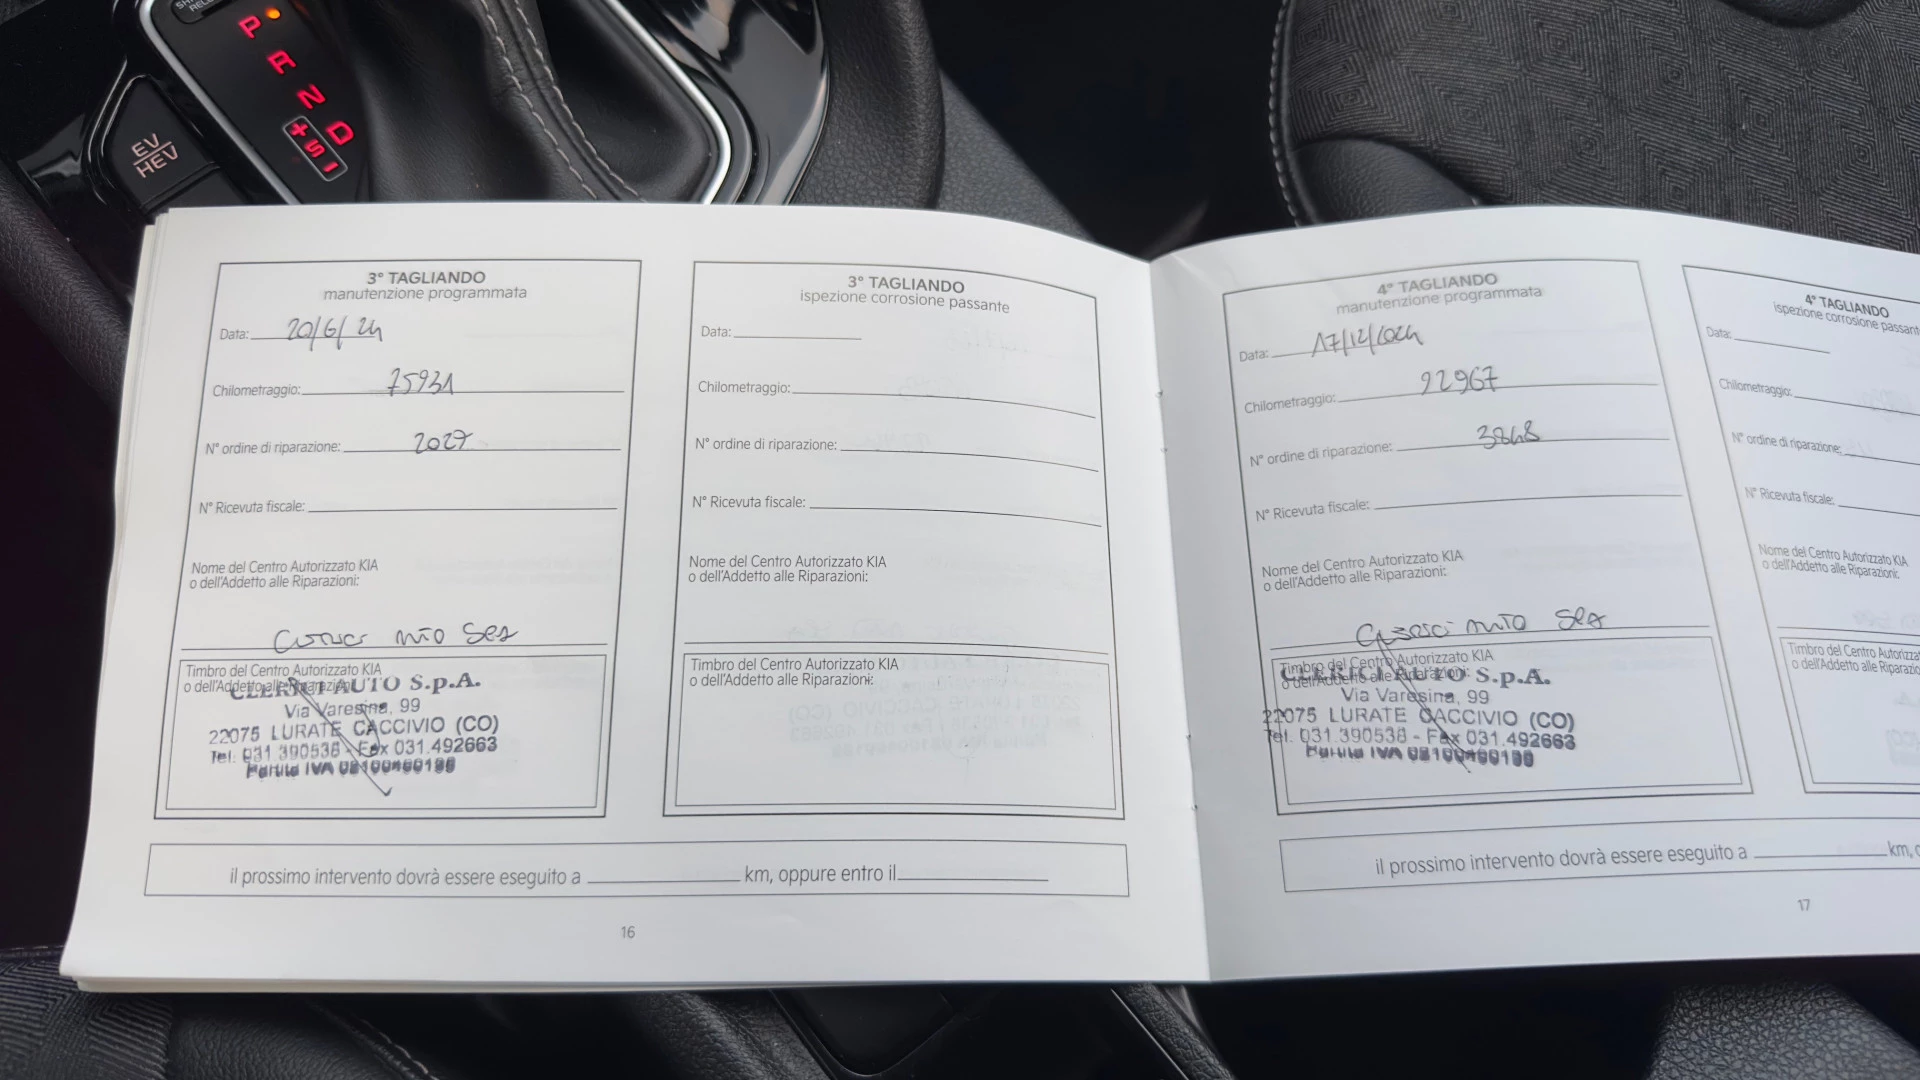 P
R
N
D
+
S
-
EV
HEV
3° TAGLIANDO
manutenzione programmata
Data: 20/6/24
Chilometraggio: 75931
N° ordine di riparazione: 2027
N° Ricevuta fiscale:
Nome del Centro Autorizzato KIA
o dell'Addetto alle Riparazioni:
Timbro del Centro Autorizzato KIA
o dell'Addetto alle Riparazioni:
AUTO S.p.A.
Via Varesina, 99
22075 LURATE CACCIVIO (CO)
Tel. 031.390538 - Fax 031.492663
Partita IVA
3° TAGLIANDO
ispezione corrosione passante
Data:
Chilometraggio:
N° ordine di riparazione:
N° Ricevuta fiscale:
Nome del Centro Autorizzato KIA
o dell'Addetto alle Riparazioni:
Timbro del Centro Autorizzato KIA
o dell'Addetto alle Riparazioni:
il prossimo intervento dovrà essere eseguito a km, oppure entro il
16
4° TAGLIANDO
manutenzione programmata
Data: 17/12/2024
Chilometraggio: 92967
N° ordine di riparazione: 3848
N° Ricevuta fiscale:
Nome del Centro Autorizzato KIA
o dell'Addetto alle Riparazioni:
Timbro del Centro Autorizzato KIA
o dell'Addetto alle Riparazioni:
AUTO S.p.A.
Via Varesina, 99
22075 LURATE CACCIVIO (CO)
Tel. 031.390538 - Fax 031.492663
Partita IVA
4° TAGLIANDO
ispezione corrosione passant
Data:
Chilometraggio:
N° ordine di riparazione:
N° Ricevuta fiscale:
Nome del Centro Autorizzato KIA
o dell'Addetto alle Riparazioni:
Timbro del Centro Autorizza
o dell'Addetto alle Riparazio
il prossimo intervento dovrà essere eseguito a km,
17